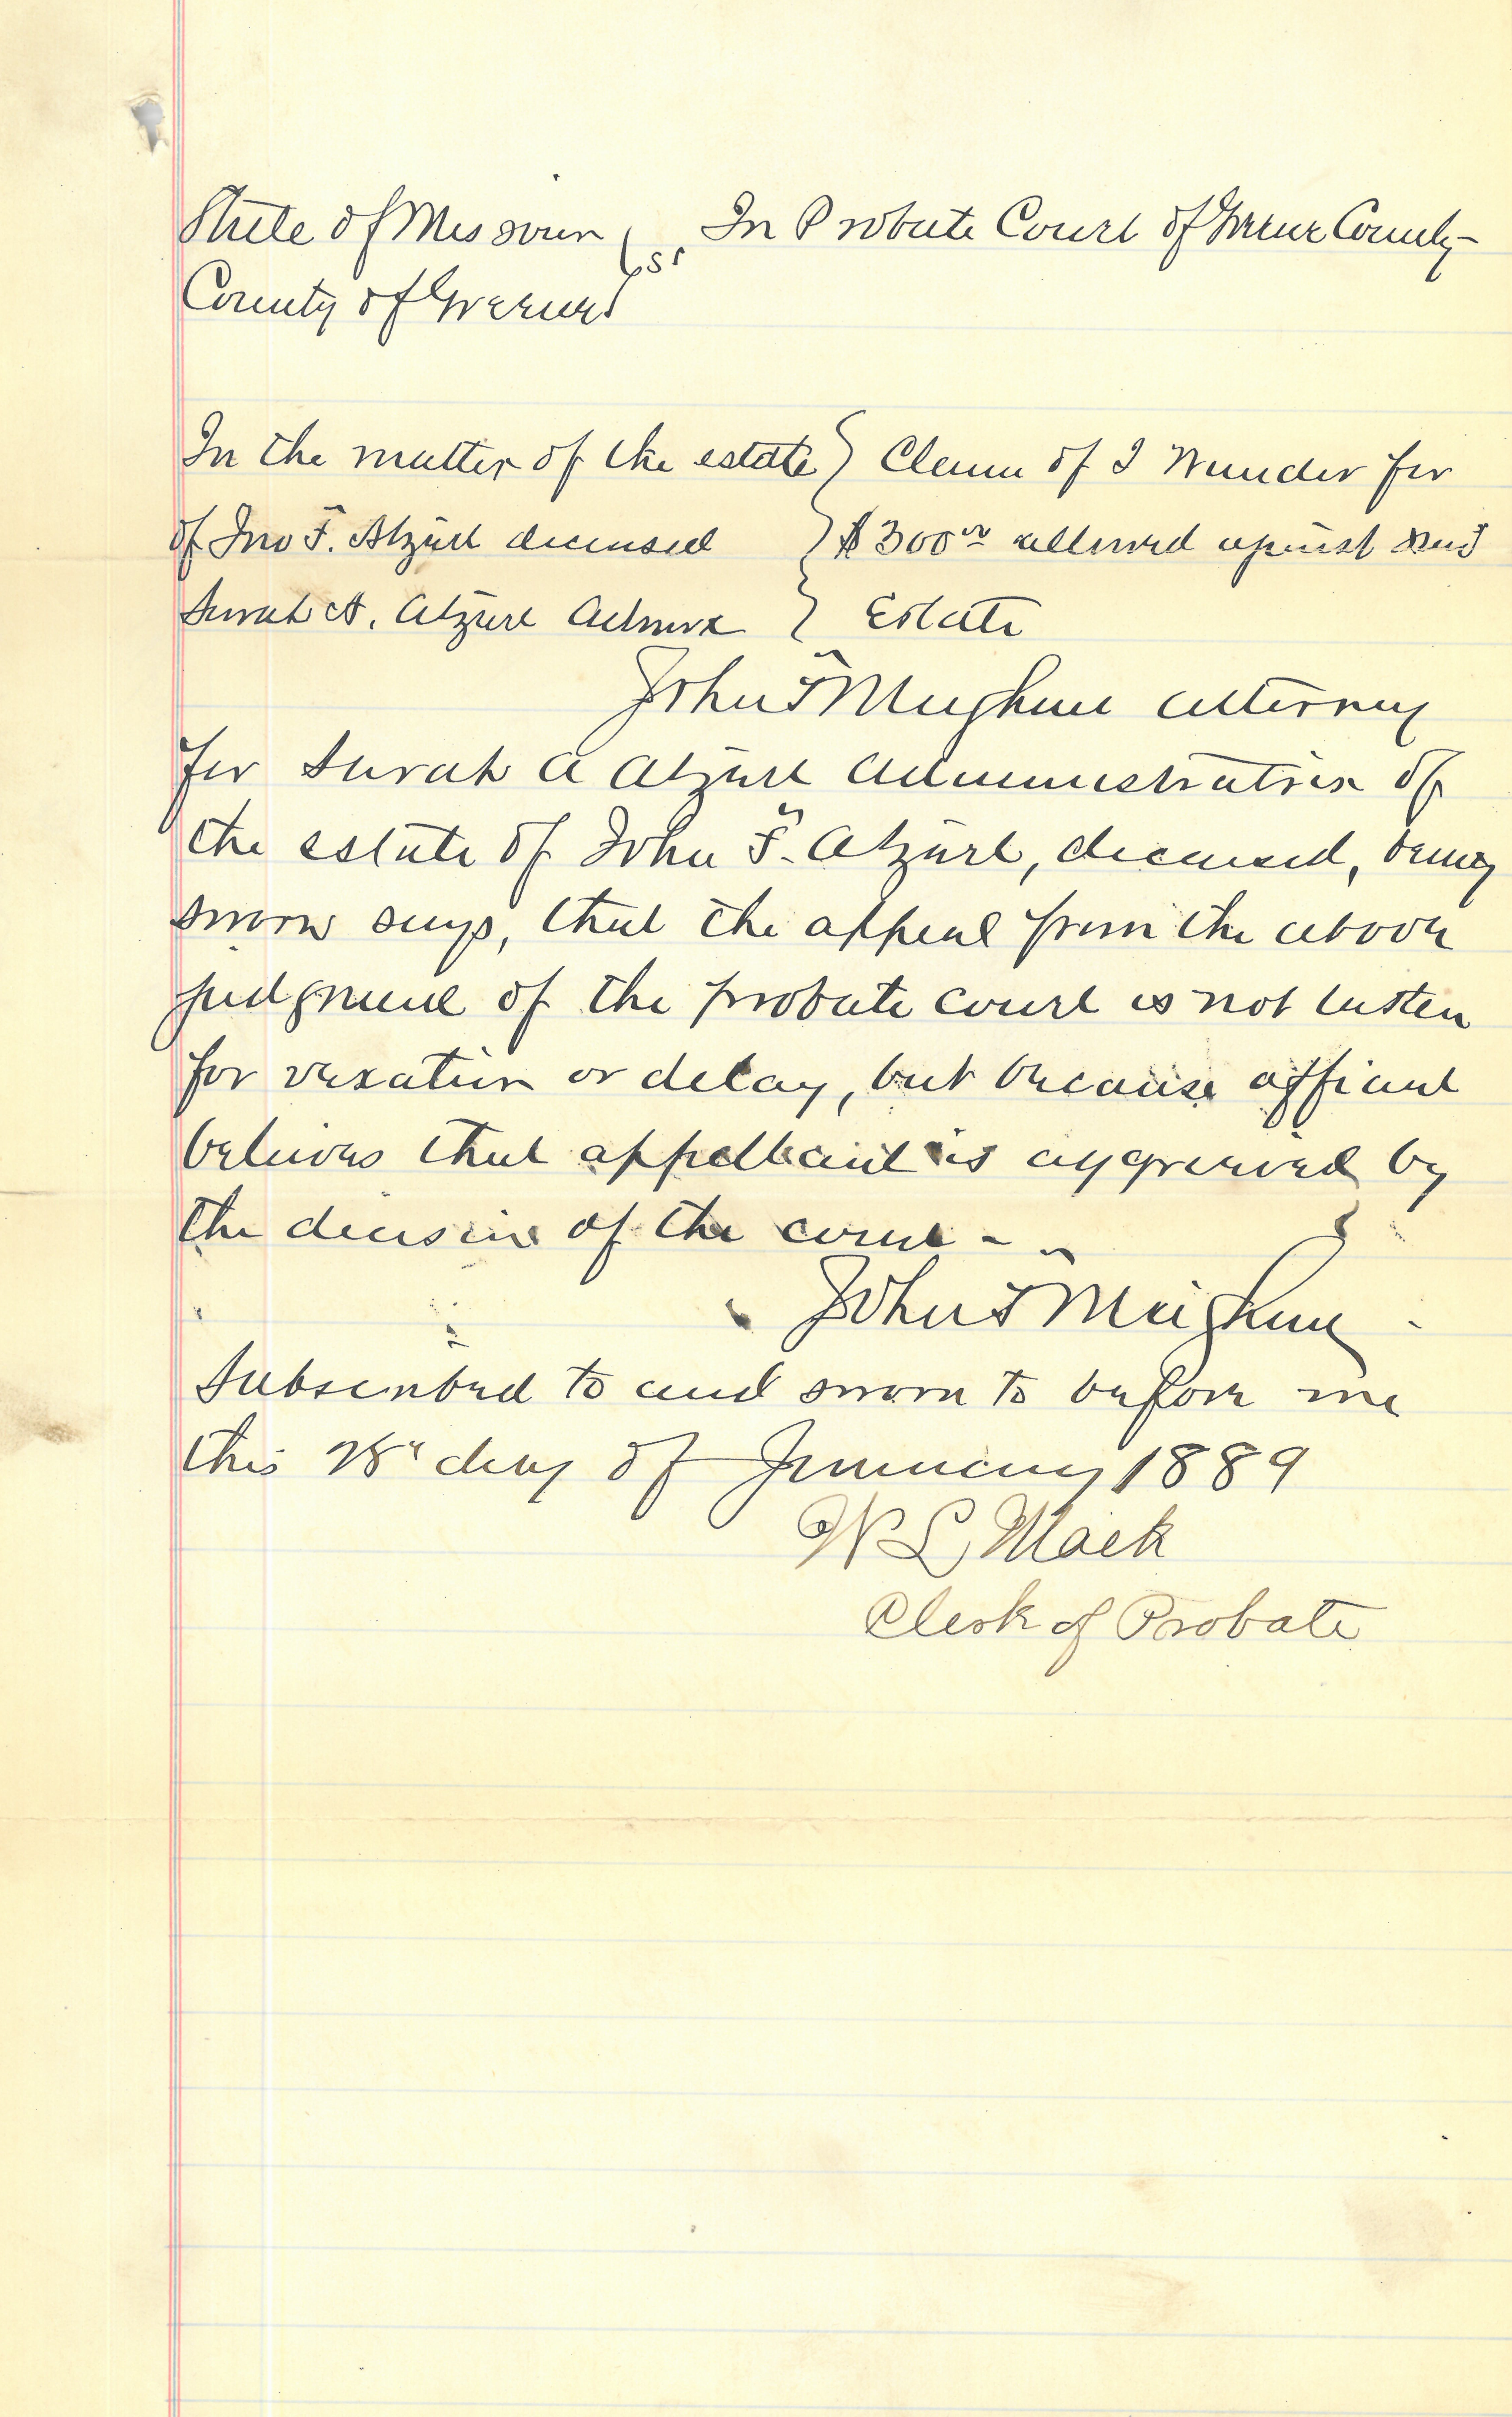 State of Missouri } ss. In Probate Court of Greene County
County of Greene }
In the matter of the estate } Claim of I Wunder for
of Jno F. Atzirt deceased } $300 00 allowed against said
Sarah A. Atzirt Admrx } Estate
John T Meighan attorney
for Sarah A Atzirt Administratrix of
the estate of John F. Atzirt, deceased, being
sworn says, that the appeal from the above
judgment of the probate court is not taken
for vexation or delay, but because affiant
believes that appellant is aggrieved by
the decision of the court -
John T Meighan
Subscribed to and sworn to before me
this 28" day of January 1889
W L Mack
Clerk of Probate